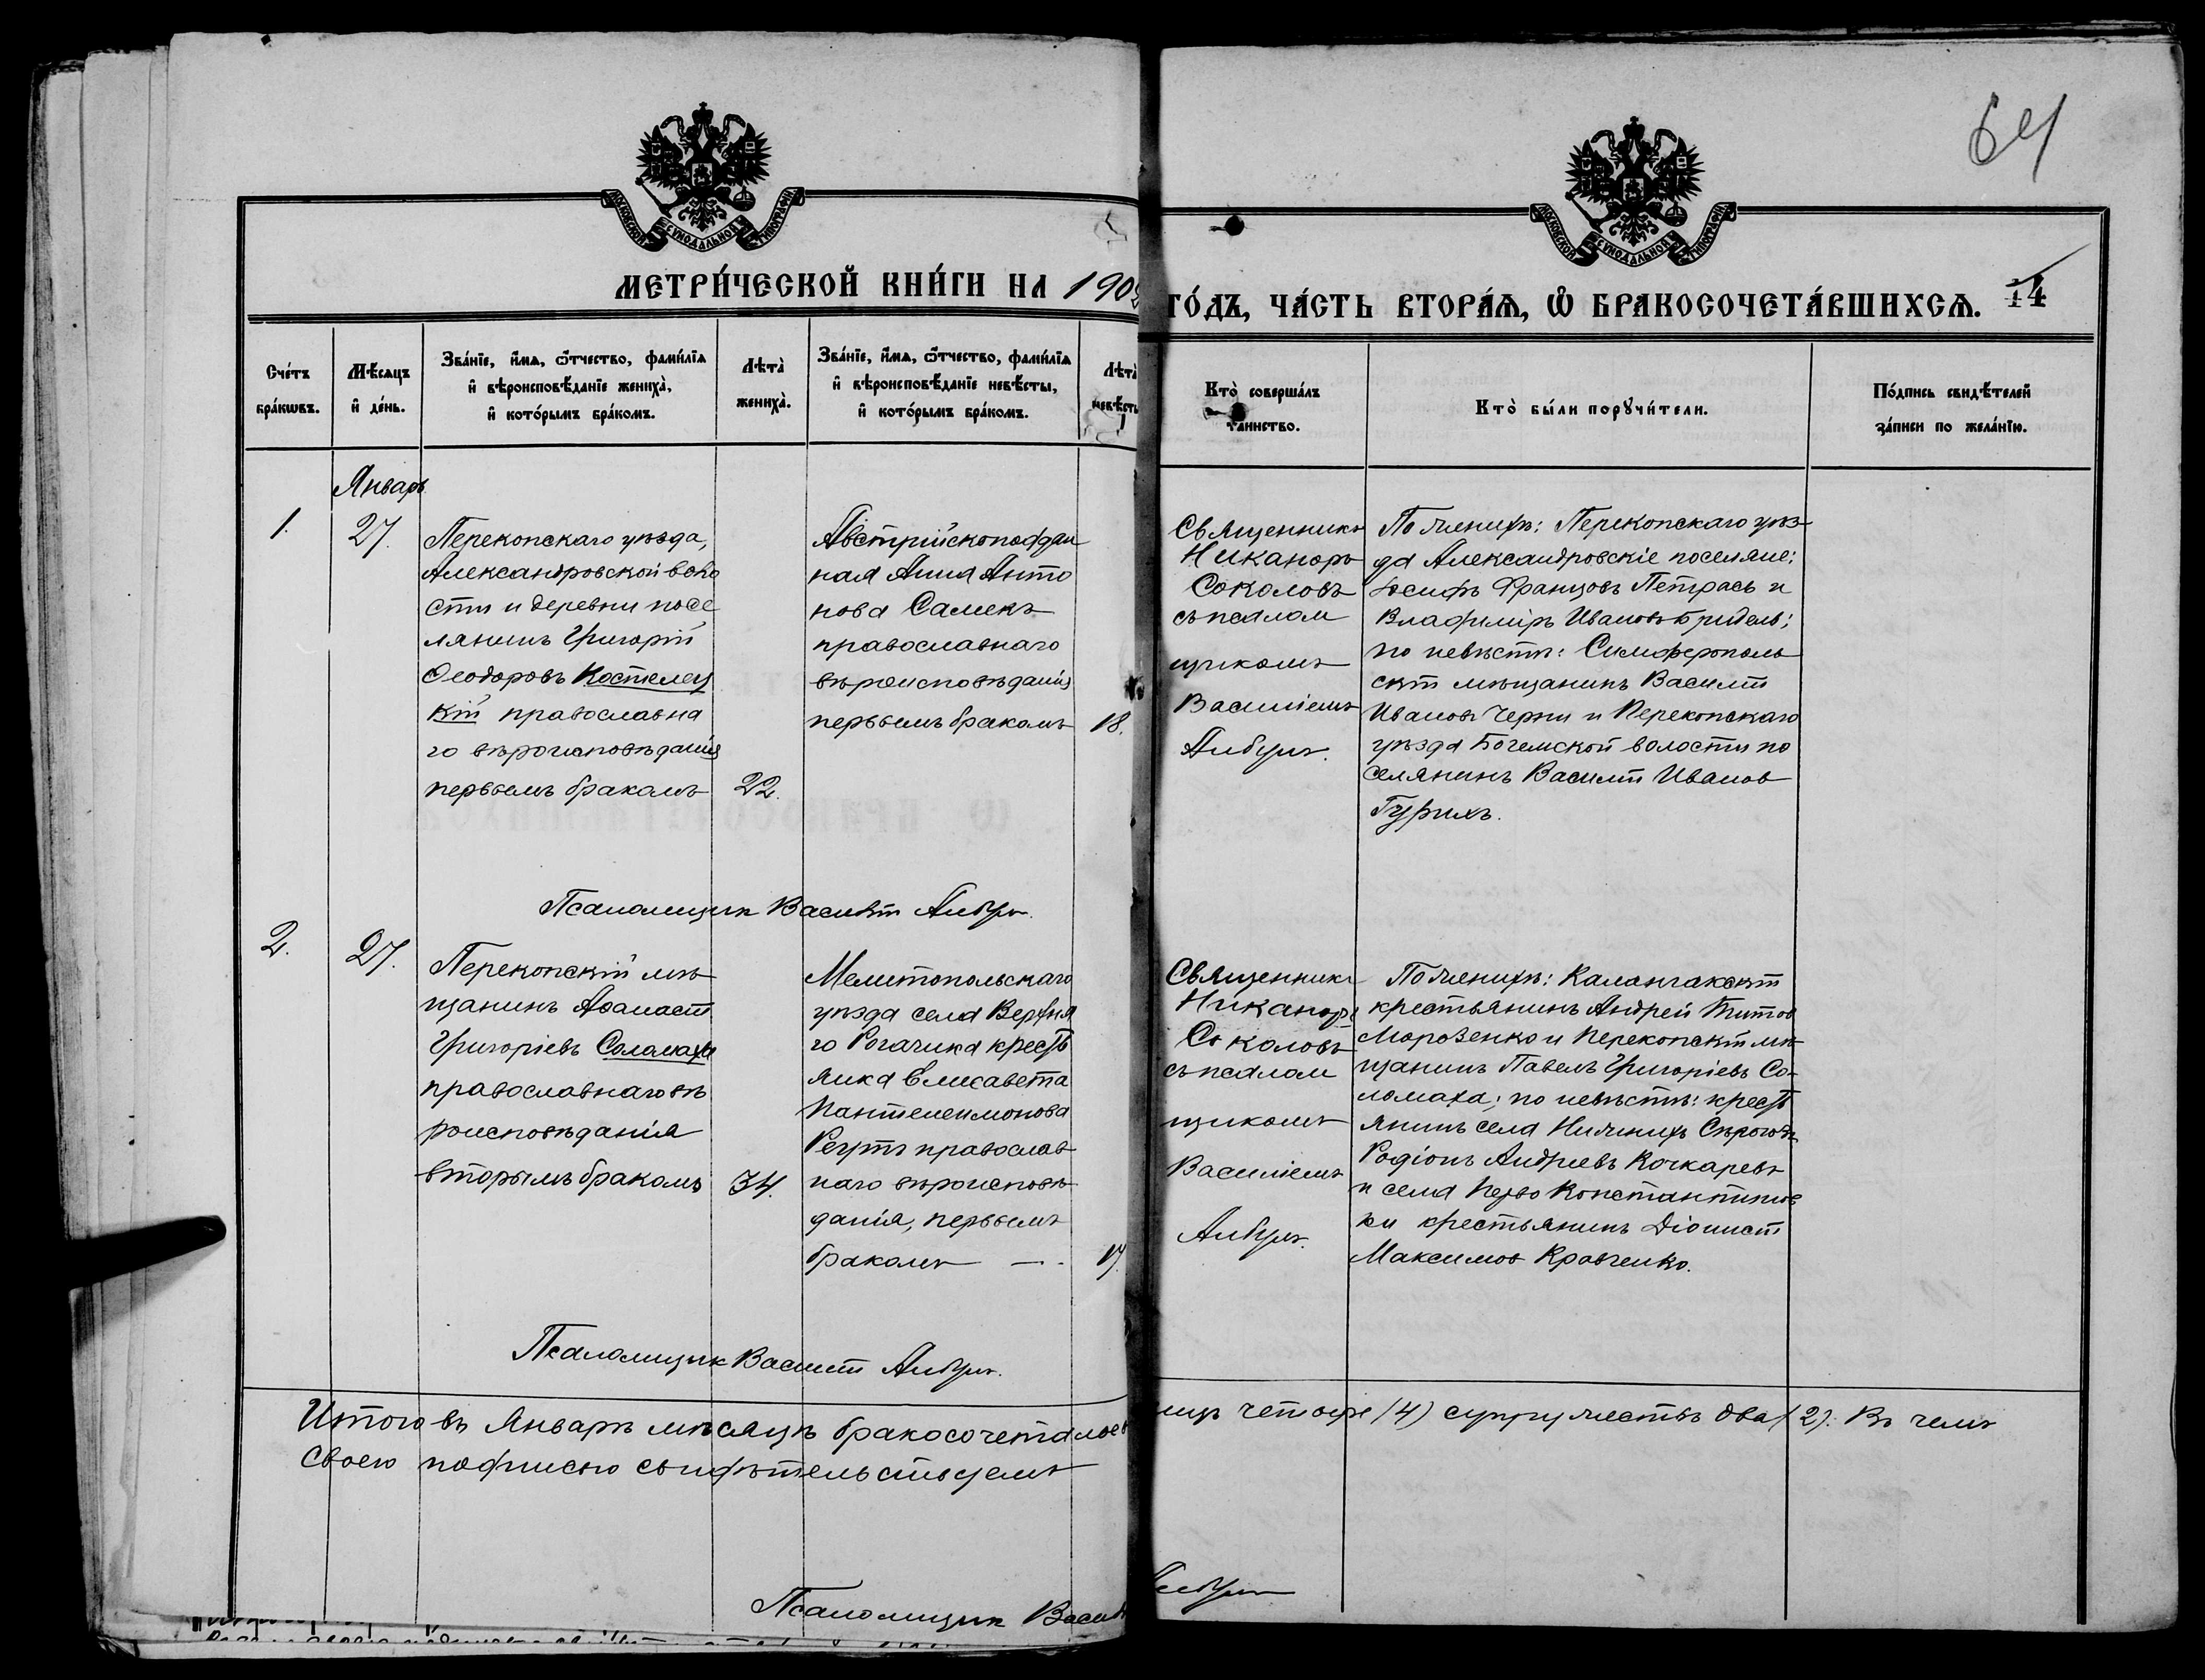 64
МОСКОВСКОЙ СѴНОДАЛЬНОЙ ТИПОГРАФІИ
МОСКОВСКОЙ СѴНОДАЛЬНОЙ ТИПОГРАФІИ
МЕТРИ́ЧЕСКОЙ КНИ́ГИ НА 1902
ГО́ДЪ, ЧА́СТЬ ВТОРА́Я, Ѡ БРАКОСОЧЕТА́ВШИХСѦ. 14
Сче́тъ бра́кѡвъ.
Мѣ́сяцъ и҆ де́нь.
Зва́нїе, и҆́мѧ, ѻ҆́тчество, фами́лїѧ
и҆ вѣроисповѣ́данїе жениха̀,
и҆ кото́рымъ бра́комъ.
Лѣта̀ жениха̀.
Зва́нїе, и҆́мѧ, ѻ҆́тчество, фами́лїѧ
и҆ вѣроисповѣ́данїе невѣ́сты,
и҆ кото́рымъ бра́комъ.
Лѣта̀ невѣсты
Кто̀ соверша́лъ
таинство.
Кто̀ бы́ли порꙋчи́тели.
По́дпись свидѣ́телей
за́писи по жела́нїю.
Январь
1.
27.
Перекопскаго уѣзда,
Александровской воло
сти и деревни посе
лянинъ Григорій
Ѳеодоровъ Костелец
кій православна
го вѣроисповѣданія
первымъ бракомъ
22.
Австрійскоподдан
ная Анна Анто
нова Самекъ
православнаго
вѣроисповѣданія
первымъ бракомъ
18.
Священникъ
Никаноръ
Соколовъ
съ псалом
щикомъ
Василіемъ
По женихѣ: Перекопскаго уѣз-
да Александровскіе поселяне:
Іосифъ Францовъ Петрась и
Владиміръ Ивановъ
по невѣстѣ: Симферополь
скій мѣщанинъ Василій
Ивановъ Черны и Перекопскаго
уѣзда Богемской волости по
селянинъ Василій Иванов
Псаломщик Василій
2.
27.
Перекопскій мѣ
щанинъ Аѳанасій
Григоріевъ Соломаха
православнаго вѣ
роисповѣданія
вторымъ бракомъ
34.
Мелитопольскаго
уѣзда села Верхня
го Рогачика кресть
янка Елисавета
Пантелеимонова
православ
наго вѣроисповѣ
данія, первымъ
бракомъ —.
17.
Священникъ
Никаноръ
Соколовъ
съ псалом
щикомъ
Василіемъ
По женихѣ: Каланчакскій
крестьянинъ Андрей Титов
Морозенко и Перекопскій мѣ
щанинъ Павелъ Григоріевъ Со-
ломаха; по невѣстѣ: кресть
янинъ села Нижнихъ Сѣрогозъ
Родіонъ Андреевъ Кочкаревъ
и села Ново Константинов
ки крестьянинъ Діонисій
Максимов Кравченко.
Псаломщик Василій
Итого въ Январѣ мѣсяцѣ бракосочеталось
лицъ четыре (4) супружествъ два (2). Въ чемъ
Своею подписью свидѣтельствуемъ
Псаломщик Васил